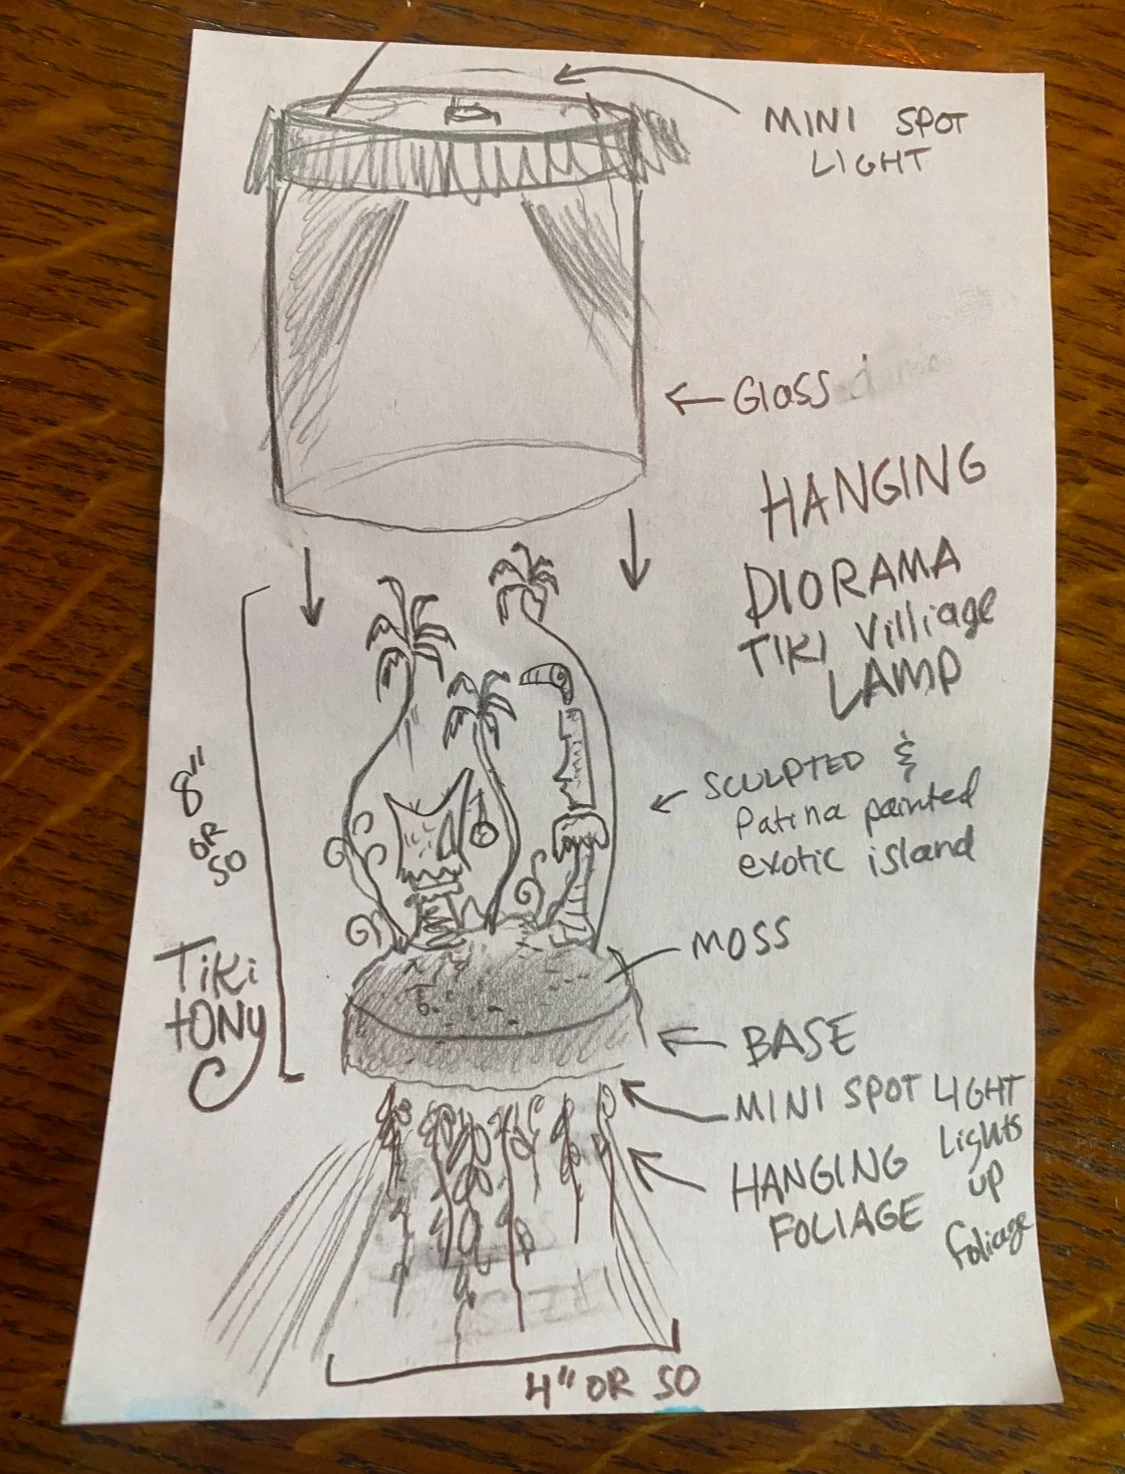 MINI SPOT
LIGHT
Glass
HANGING
DIORAMA
TIKI Villiage
LAMP
8"
OR
SO
SCULPTED &
Patina painted
exotic island
MOSS
Tiki
tony
BASE
MINI SPOT LIGHT
Lights
up
foliage
HANGING
FOLIAGE
4" OR SO